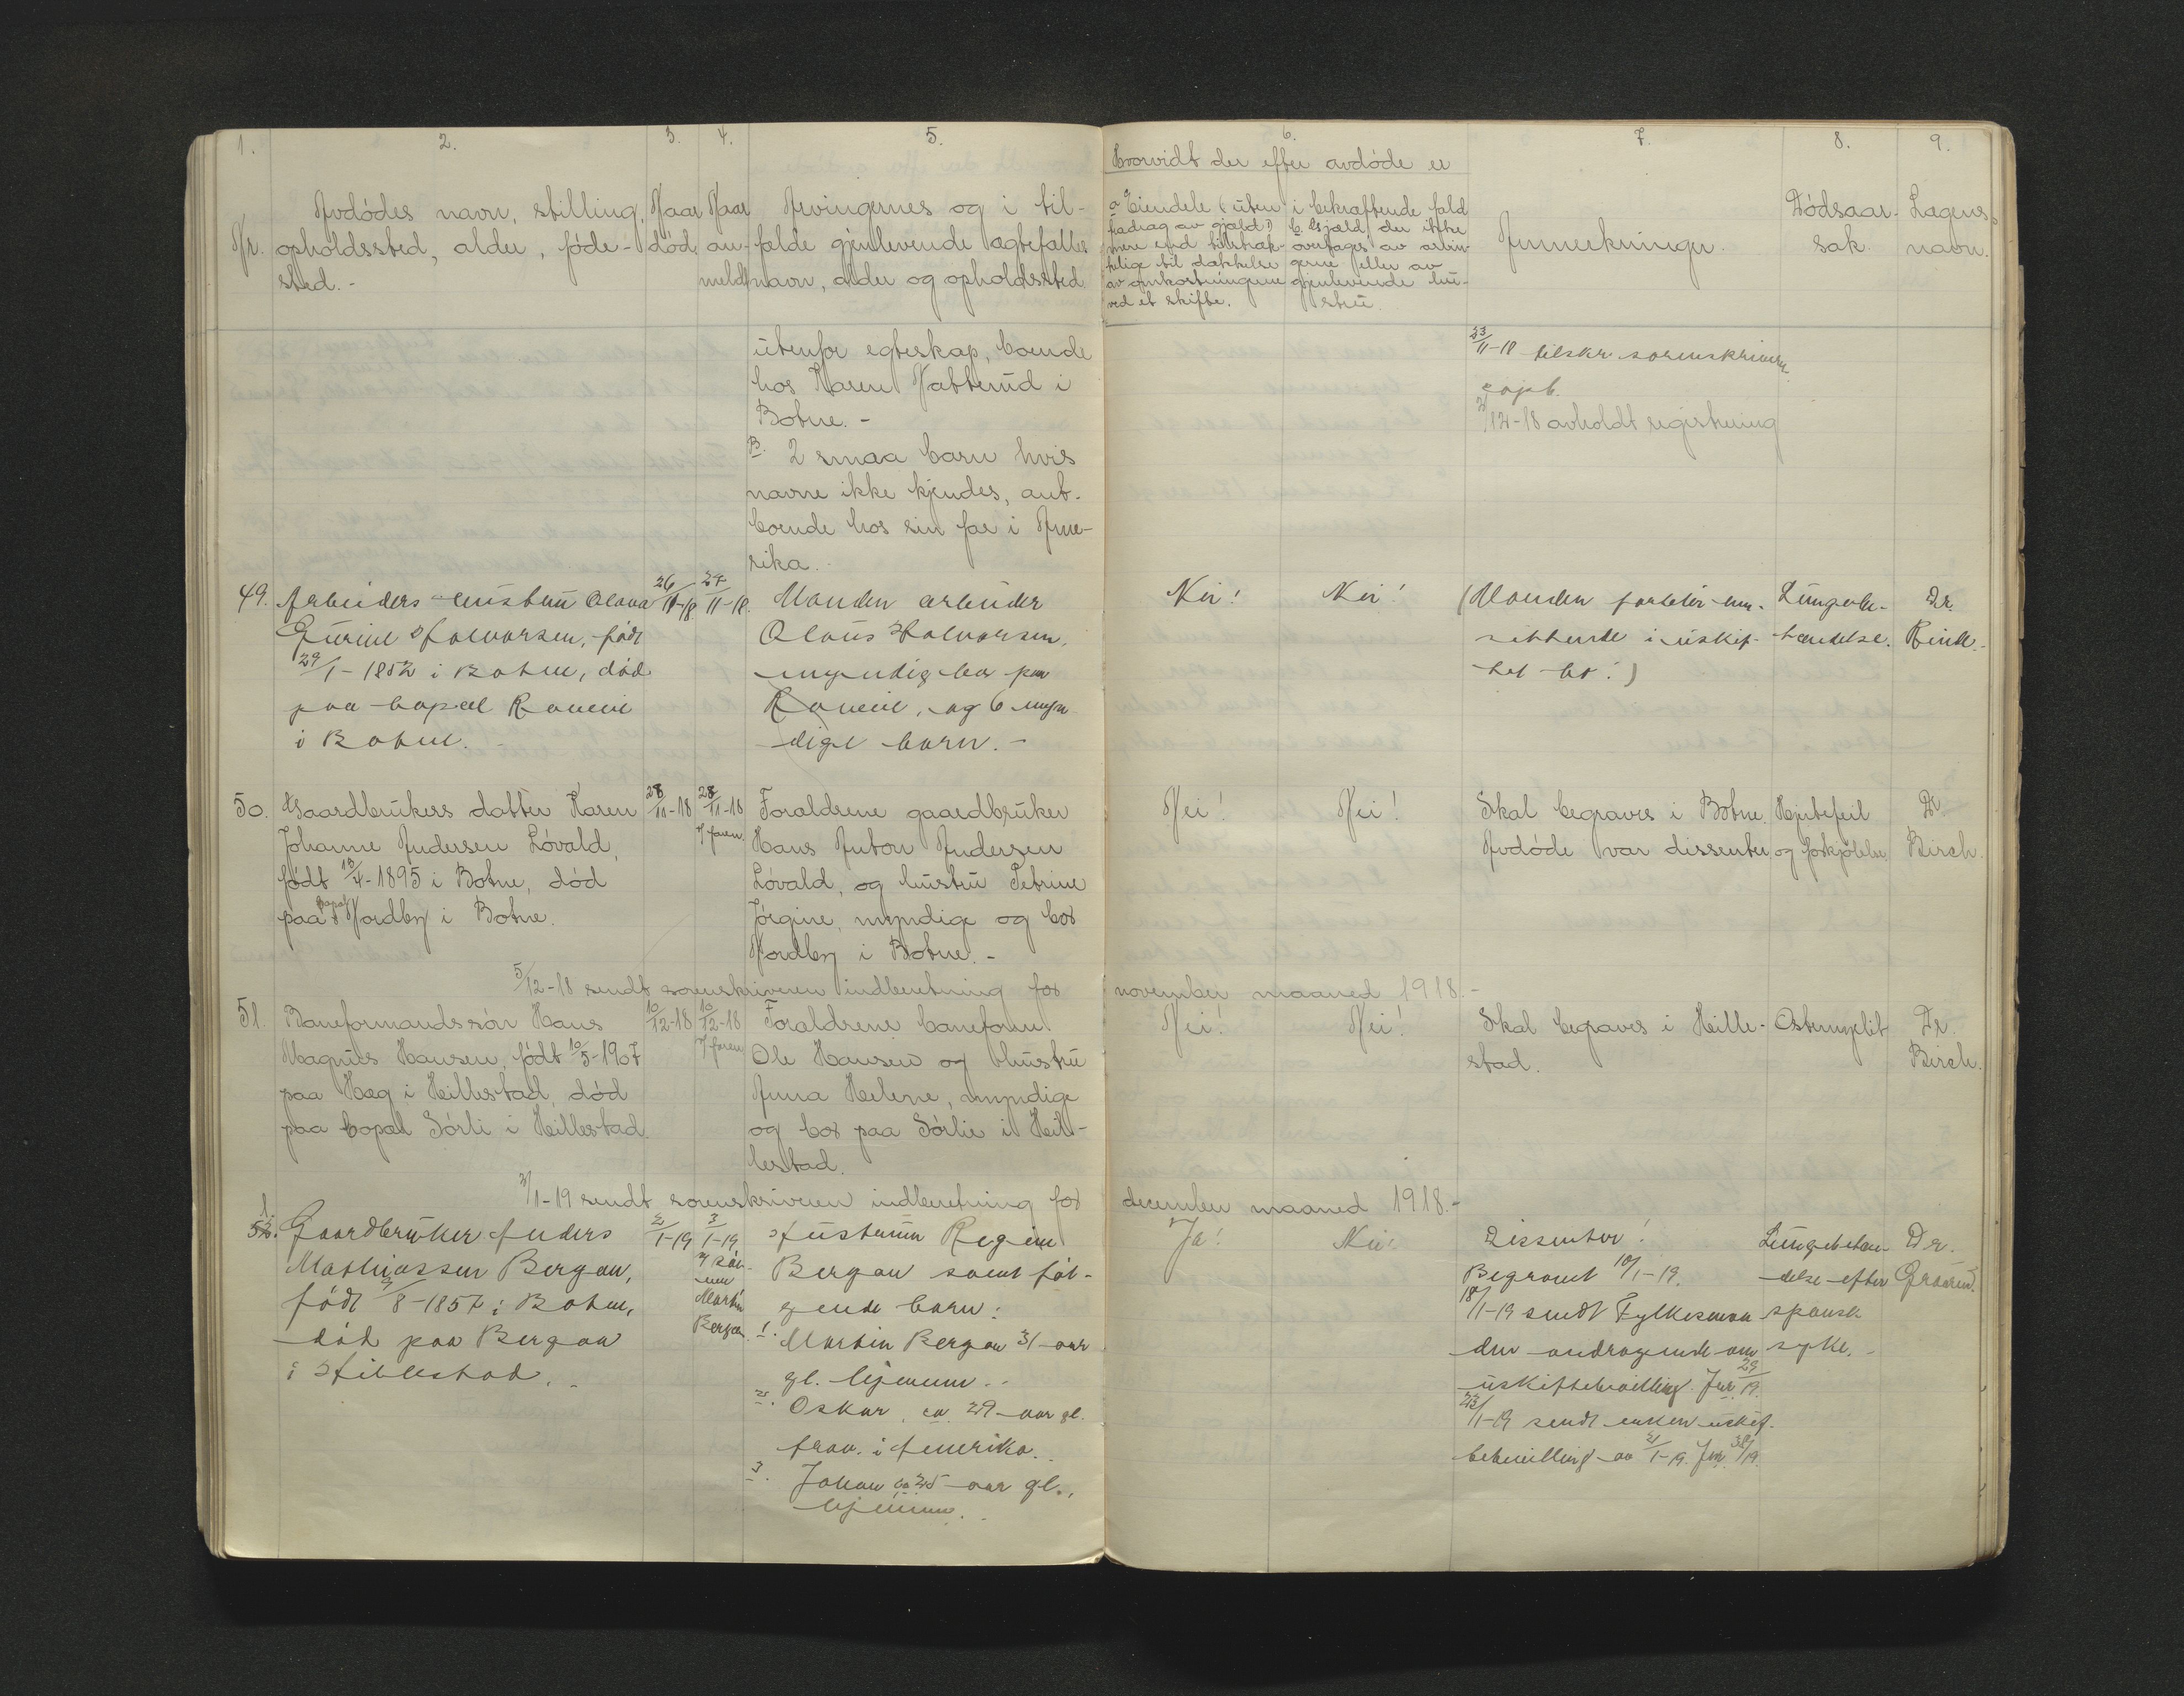 1. 2. 3. 4. 5. 6. 7. 8. 9.
Nr.
Avdódes navn, stilling,
opholdssted, alder, föde-
sted. -
Naar
död
Naar
an-
meldt
Arvingernes og i til-
fælde gjenlevende ægtefælles
navn, alder og opholdssted
Hvorvidt der efter avdóde er
a Eiendele (uten
fradrag av gjæld)
mere end tilstræk-
kelige til dækkelse
av omkostningerne
ved et skifte.
i bekræftende fald
b. Gjæld, der ikke
overtages av arvin-
gerne eller av
gjenlevende hu-
stru.
Anmerkninger.
Dódsaar-
sak.
Lægens
navn.
utenfor egteskap, boende
hos Karen Natterud i
Botne. -
B. 2 smaa barn hvis
navne ikke kjendes, ant.
boende hos sin far i Ame-
rika.
23/11-18 tilskr. sorenskriveren
/12-18 avholdt registrering
49.
Arbeiders hustru Olava
Gurine Halvorsen, född
29/1-1852 i Botne, död
paa bopæl Raveie
i Botne.
26/11-18
27/11-18.
Manden arbeider
Olaus Halvorsen,
myndig bor paa
Raveie, og 6 myn
dige barn. -
Nei!
Nei!
(Manden forblir hen-
sittende i uskif-
tet bo.)
Lungebe-
tændelse.
Dr.
Birch. -
50.
Gaardbrukers datter Karen
Johanne Andersen Lóvald,
födt 13/4-1895 i Botne, död
paa bopæl Nordby i Botne.
28/11-18
28/11-18
v/ faren.
Foraldrene gaardbruker
Hans Anton Andersen
Lóvald, og hustru Petrine
Jórgine, myndige og bor
Nordby i Botne. -
Nei!
Nei!
Skal begraves i Botne.
Avdóde var dissenter
Hjertefeil
og forkjólelse
Dr.
Birch.
5/12-18 sendt sorenskriveren indberetning for november maaned 1918. -
51.
Baneformandssón Hans
Magnus Hansen, födt 10/5-1907
paa Hæg i Hillestad, död
paa bopæl Sórli i Hillestad.
10/12-18
10/12-18
v/ faren
Foraldrene baneform.
Ole Hansen og hustru
Anna Helene, myndige
og bor paa Sórlie i Hil-
lestad.
Nei!
Nei!
Skal begraves i Hille-
stad.
Ostemyelit
Dr.
Birch.
3/1-19 sendt sorenskriveren indberetning for december maaned 1918. -
1.
52.
Gaardbruker Anders
Mathiassen Bergan,
födt /8-1857 i Botne,
död paa Bergan
i Hillestad. -
2/1-19
3/1-19
v/ són-
nen
Martin
Bergan.
Hustruen Regine
Bergan samt föl-
gende barn:
1. Martin Bergan 31 aar
gl. hjemme. -
2. Oskar, ca. 29 aar gl.
frav. i Amerika.
3. Johan ca 25 aar gl.,
hjemme. -
Ja!
Nei!
Dissenter!
Begravet 10/1-19.
18/1-19 sendt Fylkesman-
den andragende om
uskiftebevilling. Jnr. 29/19.
23/1-19 sendt enken uskif.
bebevilling av 21/1-19. Jnr. 38/19.
Lungebetæn-
delse efter
spansk
syke. -
Dr.
Graarud.